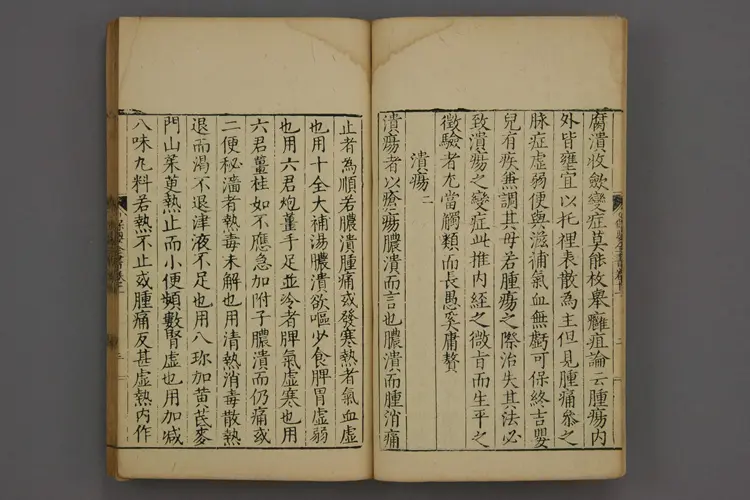 腐潰收斂變症莫能枚舉癰疽論云腫瘍内
外皆壅宜以托裡表散為主但見腫痛參之
脉症虛弱便與滋補氣血無虧可保終吉嬰
兒有疾無調其母若腫瘍之際治失其法必
致潰瘍之變症此推内經之微㫖而生平之
徵驗者尤當觸類而長愚奚庸贅
潰瘍二
潰瘍者以瘡瘍膿潰而言也膿潰而腫消痛
止者為順若膿潰腫痛或發寒熱者氣血虛
也用十全大補湯膿潰欲嘔少食脾胃虛弱
也用六君炮薑手足並冷者脾氣虛寒也用
六君薑桂如不應急加附子膿潰而仍痛或
二便秘濇者熱毒未解也用清熱消毒散熱
退而渴不退津液不足也用八珍加黄芪麥
門山茱萸熱止而小便頻數腎虛也用加减
八味丸料若熱不止或腫痛反甚虛熱内作